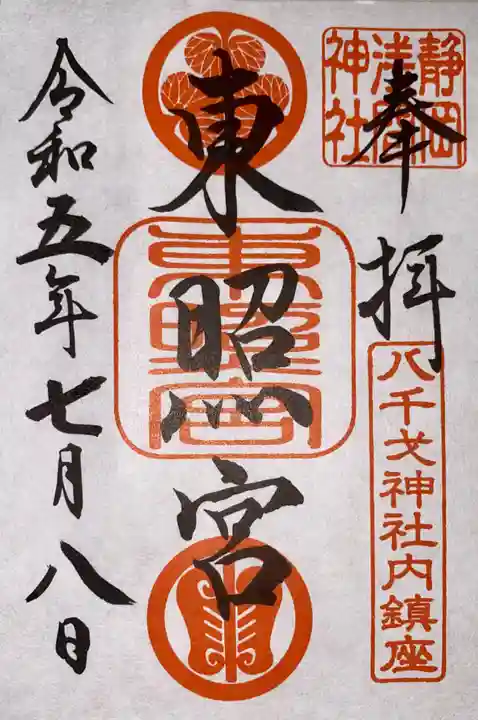 奉拝
静岡
浅間
神社
八千戈神社内鎮座
東照宮
東照宮
令和五年七月八日